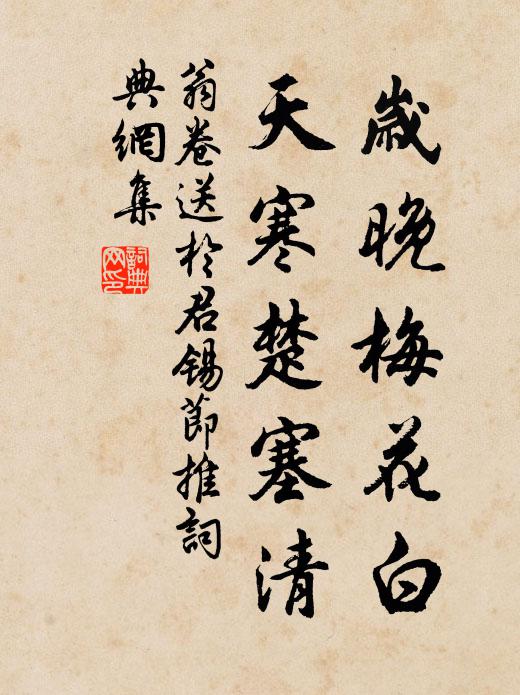 歲晚梅花白
天寒楚塞清
翁卷送於君錫節推詞
典網集
詞典
網印